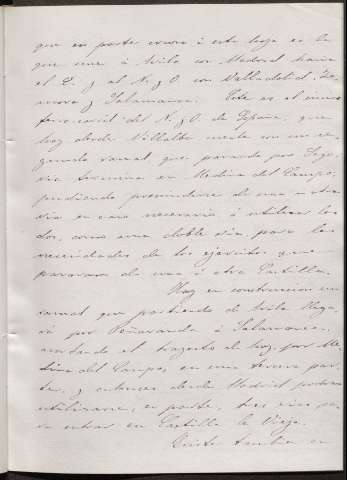 que en parte cruza á esta hoja es la
que une á Avila con Madrid hacia
el E. y al N. y O. con Valladolid, Za-
mora y Salamanca. Este es el único
ferro-carril del N. y O. de España, que
hoy desde Villalba cuenta con un se-
gundo ramal, que pasando por Sego-
via termina en Medina del Campo,
pudiendo prescindirse de una ú otra
via en caso necesario ó utilizar las
dos, como una doble via, para las
necesidades de los ejércitos que
pasaran de una á otra Castilla.
Hay en construccion un
ramal que partiendo de Avila llega-
rá por Peñaranda á Salamanca,
acortando el trayecto de hoy, por Me-
dina del Campo, en una tercera par-
te, y entonces desde Madrid podran
utilizarse, en parte, tres vias pa-
ra entrar en Castilla la Vieja.
Existe tambien